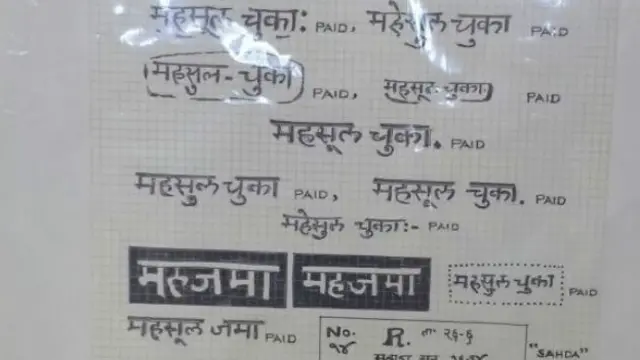 महसूल चुका: PAID, महेसुल चुका PAID
महसुल-चुका PAID, महसूल चुका PAID
महसूल चुका. PAID
महसुल चुका PAID, महसूल चुका. PAID
महेसुल चुका:- PAID
मरुजमा महजमा महसुल चुका PAID
महसूल जमा PAID No. R. ता० २६-६
१४ "SAHDA"